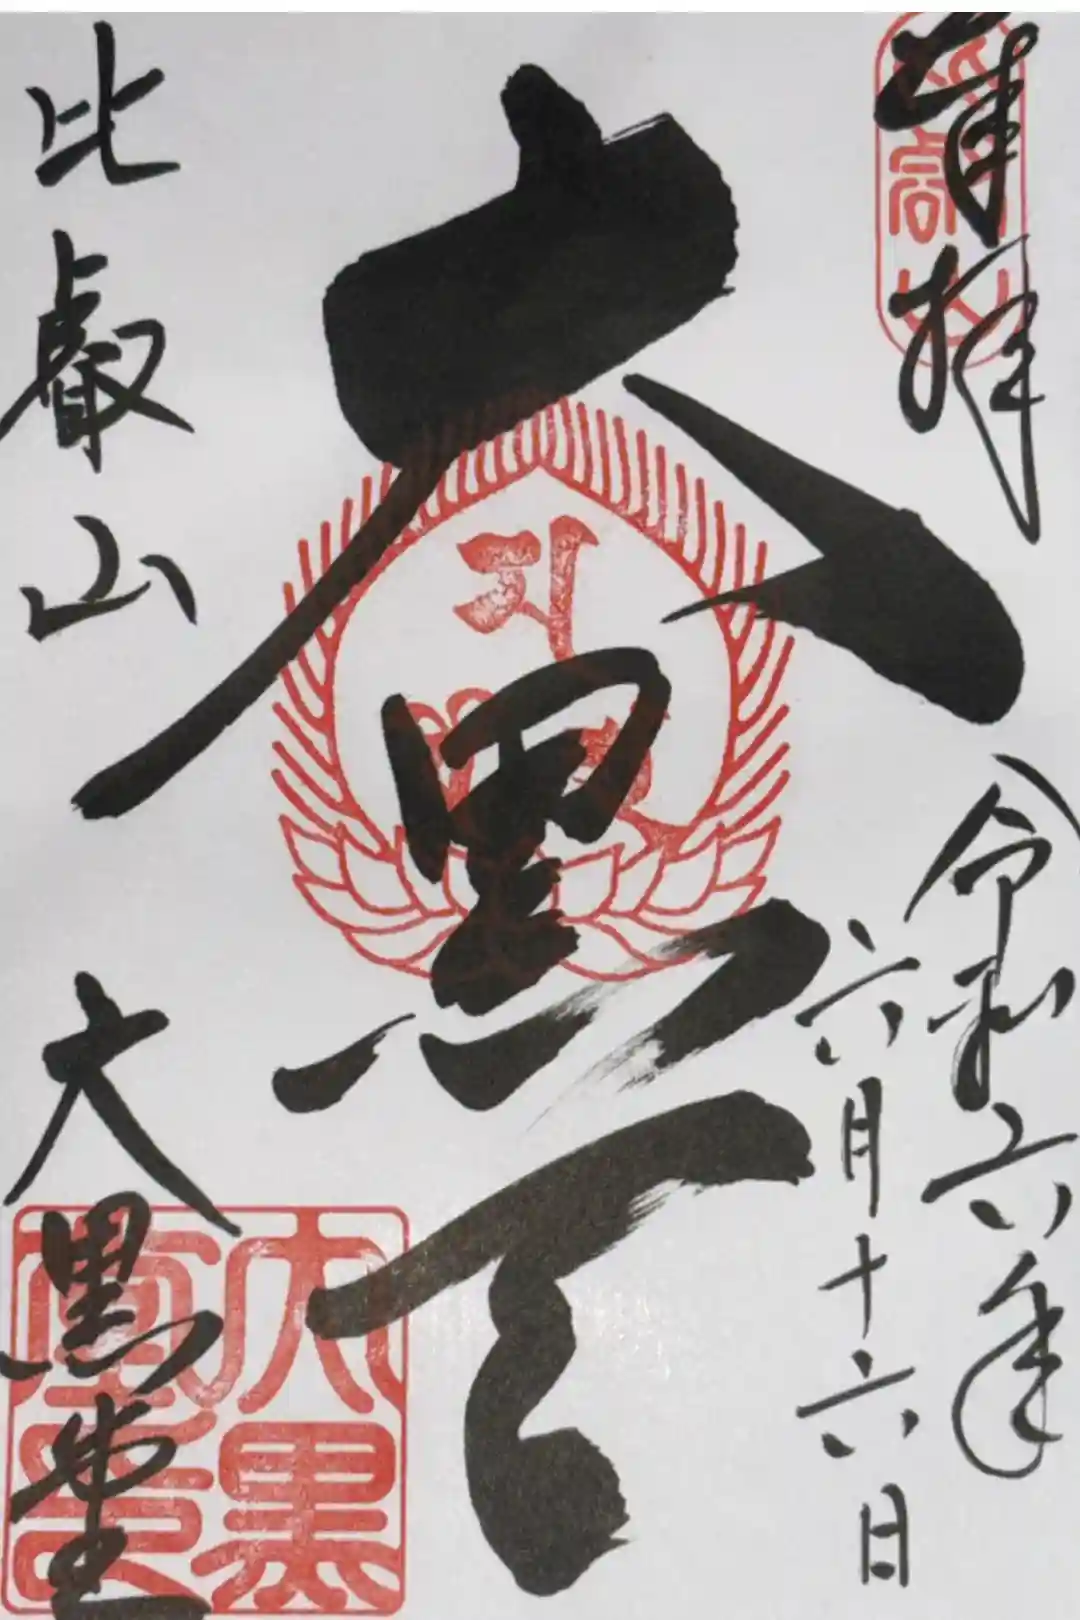 奉拝
令和六年
六月十六日
大黒天
比叡山 大黒堂
大黒堂印